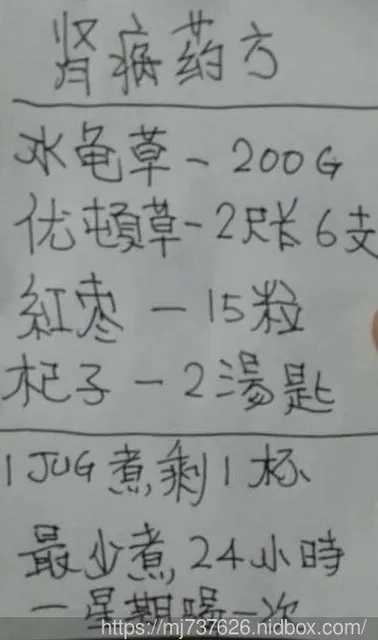 肾病药方
水龟草 - 200G
优顿草 - 2尺长 6支
紅枣 - 15粒
杞子 - 2湯匙
1 JUG 煮剩 1 杯
最少煮 24 小時
一星期喝一次
https://mj737626.nidbox.com/